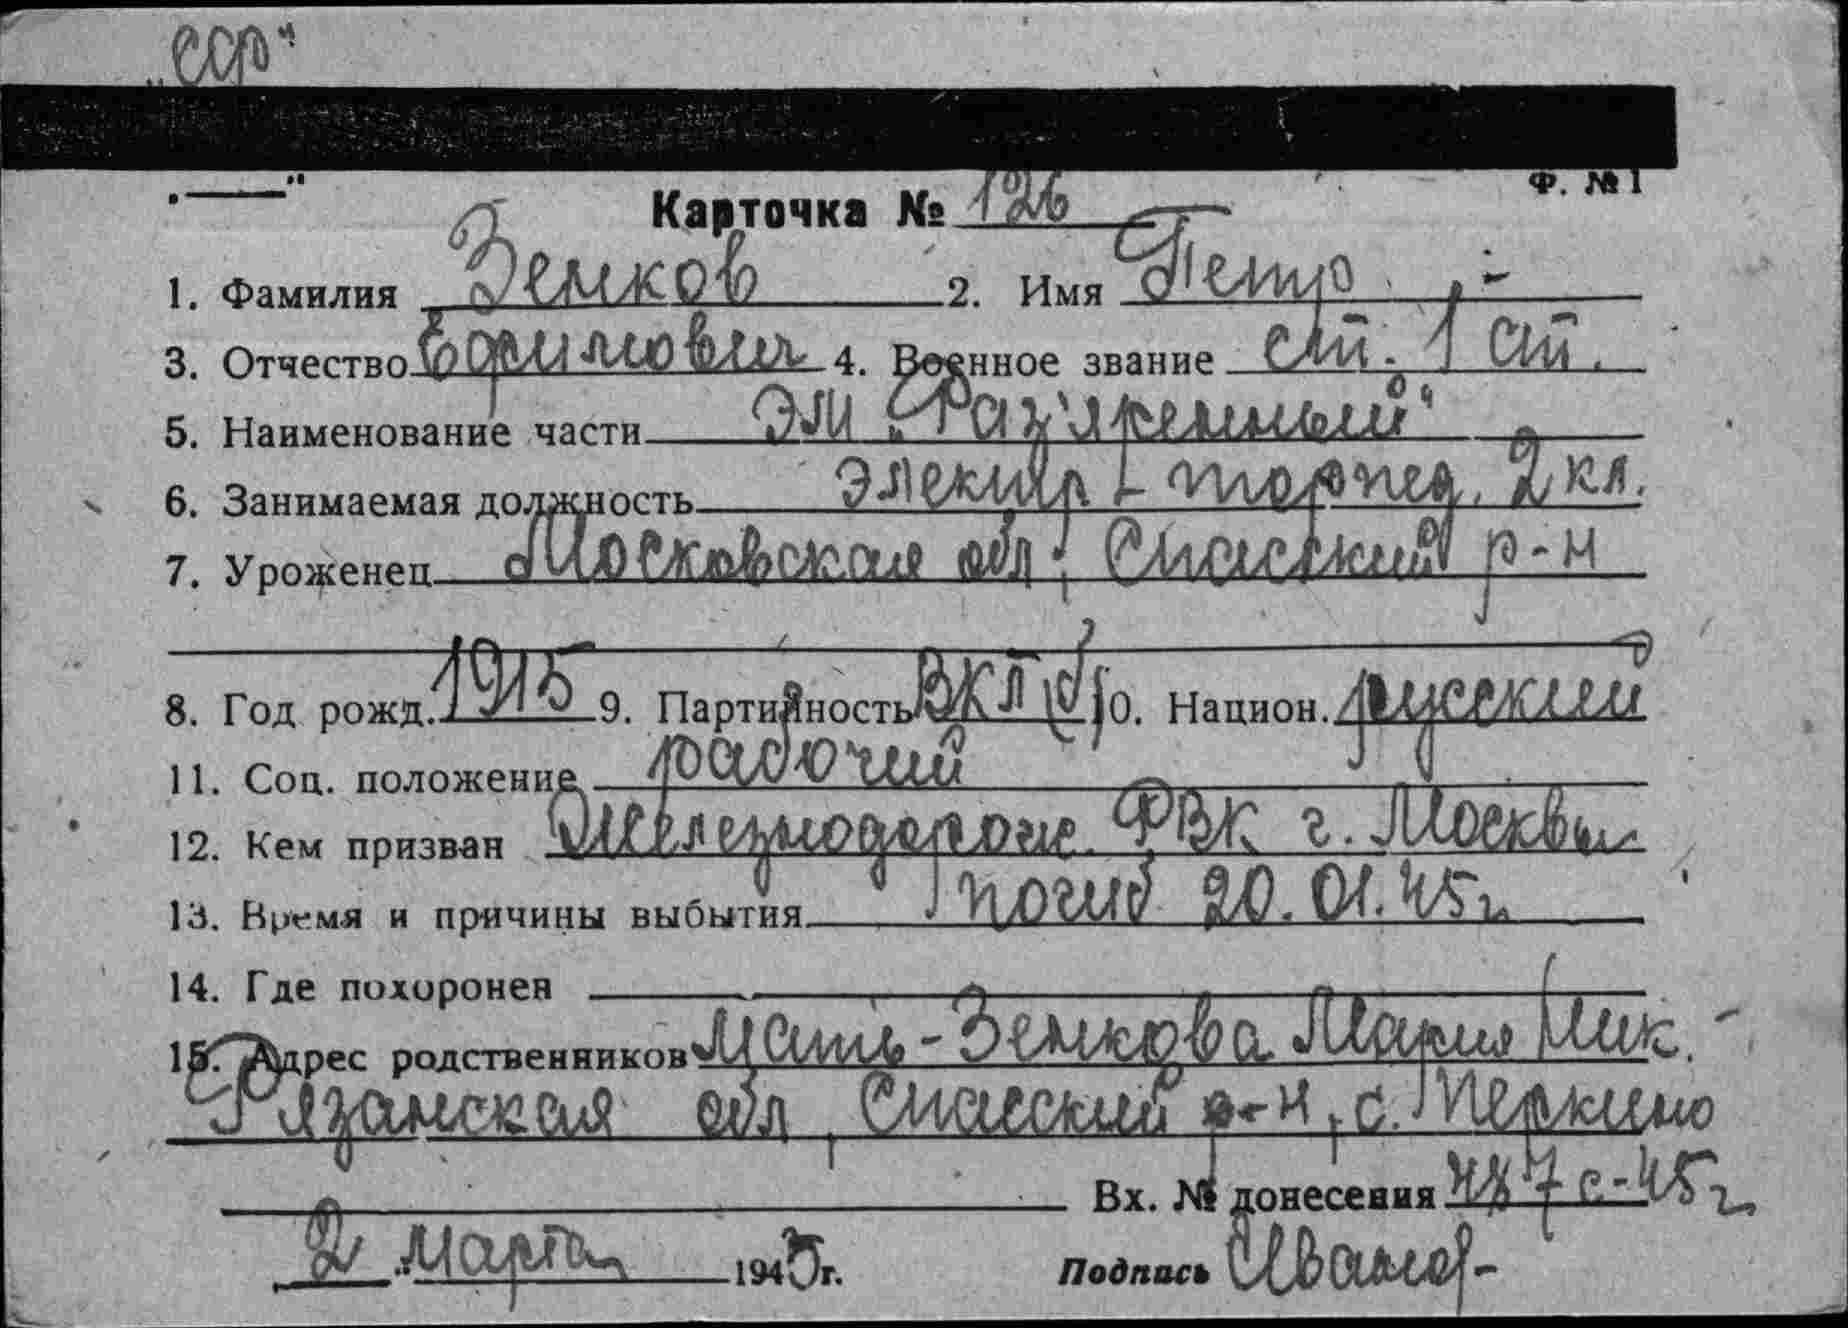 „ССР"
„——" Ф. № 1
Карточка № 126
1. Фамилия Земков 2. Имя Петр
3. Отчество Ефимович 4. Военное звание ст. 1 ст.
5. Наименование части ЭМ „Разъяренный"
6. Занимаемая должность электр.-торпед. 2 кл.
7. Уроженец Московская обл, Спасский р-н
8. Год рожд. 1915 9. Партийность ВКП(б) 10. Национ. русский
11. Соц. положение рабочий
12. Кем призван Железнодорож. РВК г. Москвы
13. Время и причины выбытия погиб 20.01.45 г.
14. Где похоронен
15. Адрес родственников Мать-Земкова Мария Ник.
Рязанская обл, Спасский р-н, с. Перкино
Вх. № донесения 487с-45г.
2 марта 1945г. Подпись